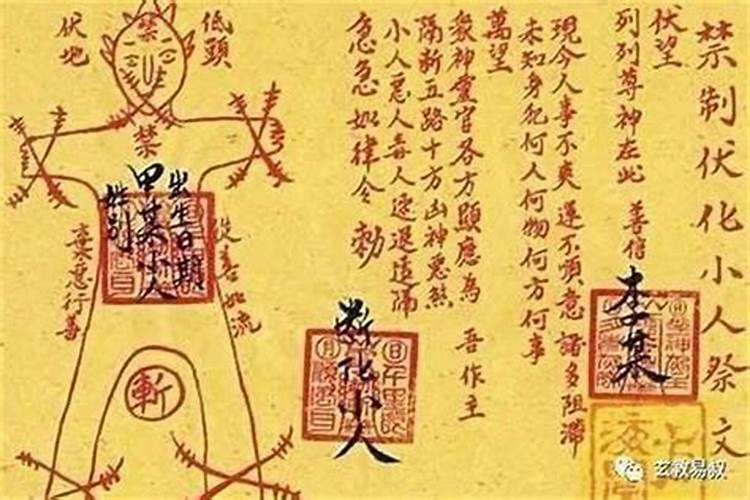 禁制伏化小人祭文
伏望
列列尊神在此 善信
李某
現今人事不爽運不順意諸多阻滯
未知身犯何人何物何方何事
萬望
衆神靈官各方顯應為 吾作主
隔斬五路十方凶神惡煞
小人惡人毒人速退遠隔
急急如律令 勅
斬化小人
低頭
伏地
禁
禁
出生日期
甲某小人
姓别
從善如流
棄惡行善
斬
玄教易叔